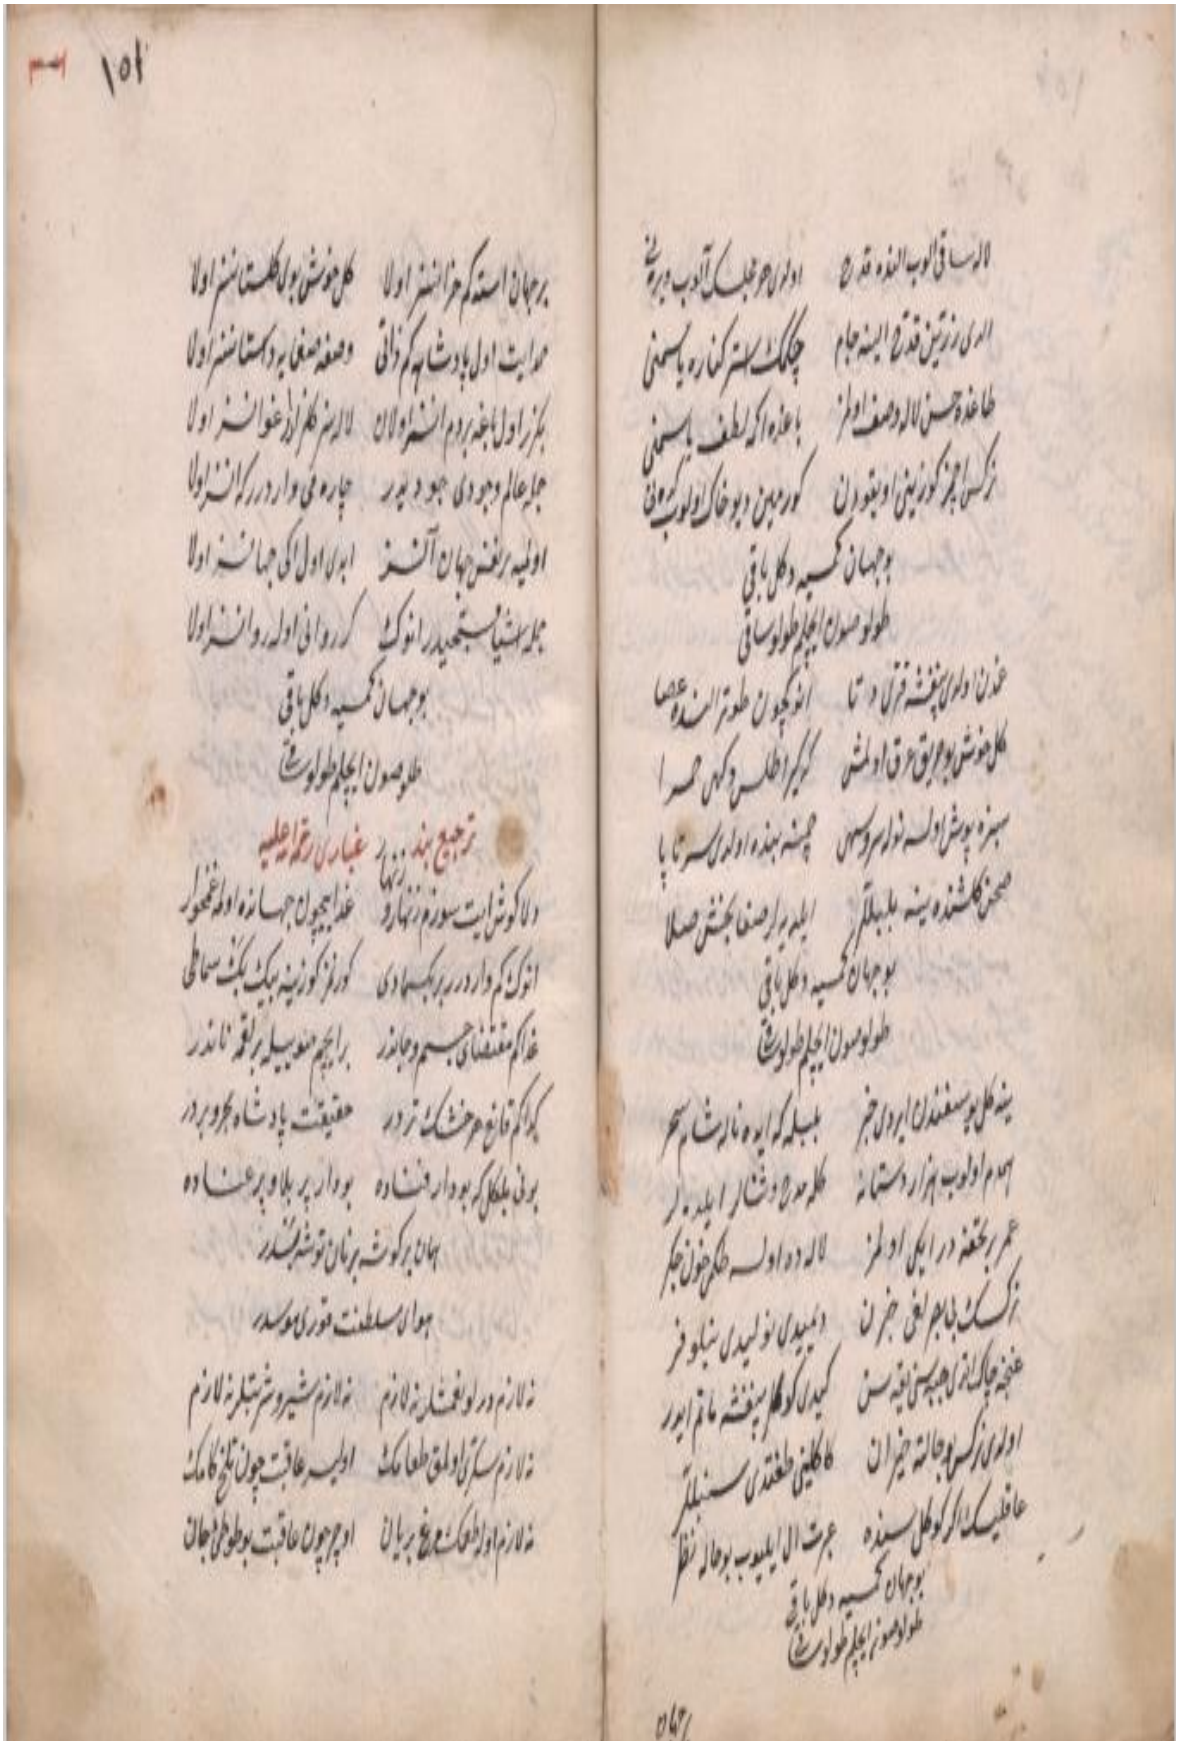 لاله ساقی الوب النده قدح اولدی هر مجلسک
الدی زرین قدح الینه جام چکمک استر کناره یاسمنی
طاغده حسن لاله وصف اولمز باغده اکه لطف یاسمنی
نرکس اچمز کوزینی اویقودن کورمین دیو خاک اولوب
بو جهان کمسیه دکل باقی
طولو صون ایچلم طولو ساقی
غمدن اولدی بنفشه قدی دوتا انوکچون طوتر النده عصا
کل خوش بو عریق عرق اولمش کر کیر اطلس و کهی خمرا
سبزه پوش اولسه نوله سرو سهی چمنه بنده اولدی سر تا پا
صحن کلشنده ینه بلبللر ایلدیلر صفا بخش صلا
بو جهان کمسیه دکل باقی
طولو صون ایچلم طولو ساقی
ینه کل یوسفندن ایردی خبر بلبله که ایده ناله شام سحر
همدم اولوب هزار دستانه کله مدح و ثنالر ایلدیلر
عمر بر تحفه در ایکی اولمز لاله ده اولسه طکمی خون جکر
نرکسک بی بصرلغی خبرن دیمیدی نولیدی نیلوفر
غنچه چاک اتدی جبه سنی یقه سن کیدی کوکلر بنفشه ماتم ایدر
اولدی نرکس بو حالته حیران کاکلینی طغتدی سنبللر
عاقلیسک اکر کوکل سنده عبرت ال ایلیوب بو حاله نظر
بو جهان کمسیه دکل باقی
طولو صون ایچلم طولو ساقی
بر جهان
۱۵۲
بر جهان استدکم خزانسز اولا کل خوش بوی کلستانسز اولا
هدایت اول پادشاهه کم ذاتی وصفه صغمایه داستانسز اولا
بکزر اول باغه بر دم انسز اولان لاله سز کلزار ارغوانسز اولا
جمله عالم وجودی جودیدر چاره می واردر که انسز اولا
اولمیه بر نفس جهان آنسز ابدی اول اکی جهانسز اولا
جمله اشیا مستحیدر انوک کر روانی اوله روانسز اولا
بو جهان کمسیه دکل باقی
طلو صون ایچلم طولو ساقی
ترجیع بند غباری رحمة الله علیه
دلا کوش ایت سوزم زنهار زنهار غدا ایچون جهانده اولمه غمخوار
انوک کم واردر بر بکسمادی کورنمز کوزینه بیک بک سماطی
غدا کم مقتضای جسم و جاندر بر ایچم صو ایله بر لقمه ناندر
کدا کم قانع هر خشک تردر حقیقت پادشاه بحر و بردر
بونی بلکل که بو دار فناده بو دار پر بلا و پر عناده
همان بر کوشه بر نان توشه بسدر
هوای سلطنت قوری هوسدر
نه لازم درلو نعمتلر نه لازم نه لازم شیر و شربتلر نه لازم
نه لازم سکری اولمق طعامک اولیسر عاقبت چون تلخ کامک
نه لازم اوله طعمک مرغ بریان اوچر چون عاقبت بو طوطئ جان